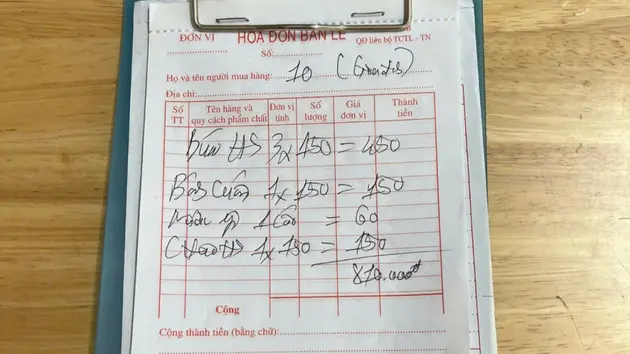 ĐƠN VỊ
HÓA ĐƠN BÁN LẺ
QĐ liên bộ TCTL - TN
Số:
Họ và tên người mua hàng: 10
Địa chỉ:
Số TT Tên hàng và quy cách phẩm chất Đơn vị tính Số lượng Giá đơn vị Thành tiền
Bún HS 3 x 150 = 450
Bánh Cuốn 1 x 150 = 150
1 = 60
Cháo HS 1 x 150 = 150
810.000đ
Cộng
Cộng thành tiền (bằng chữ):